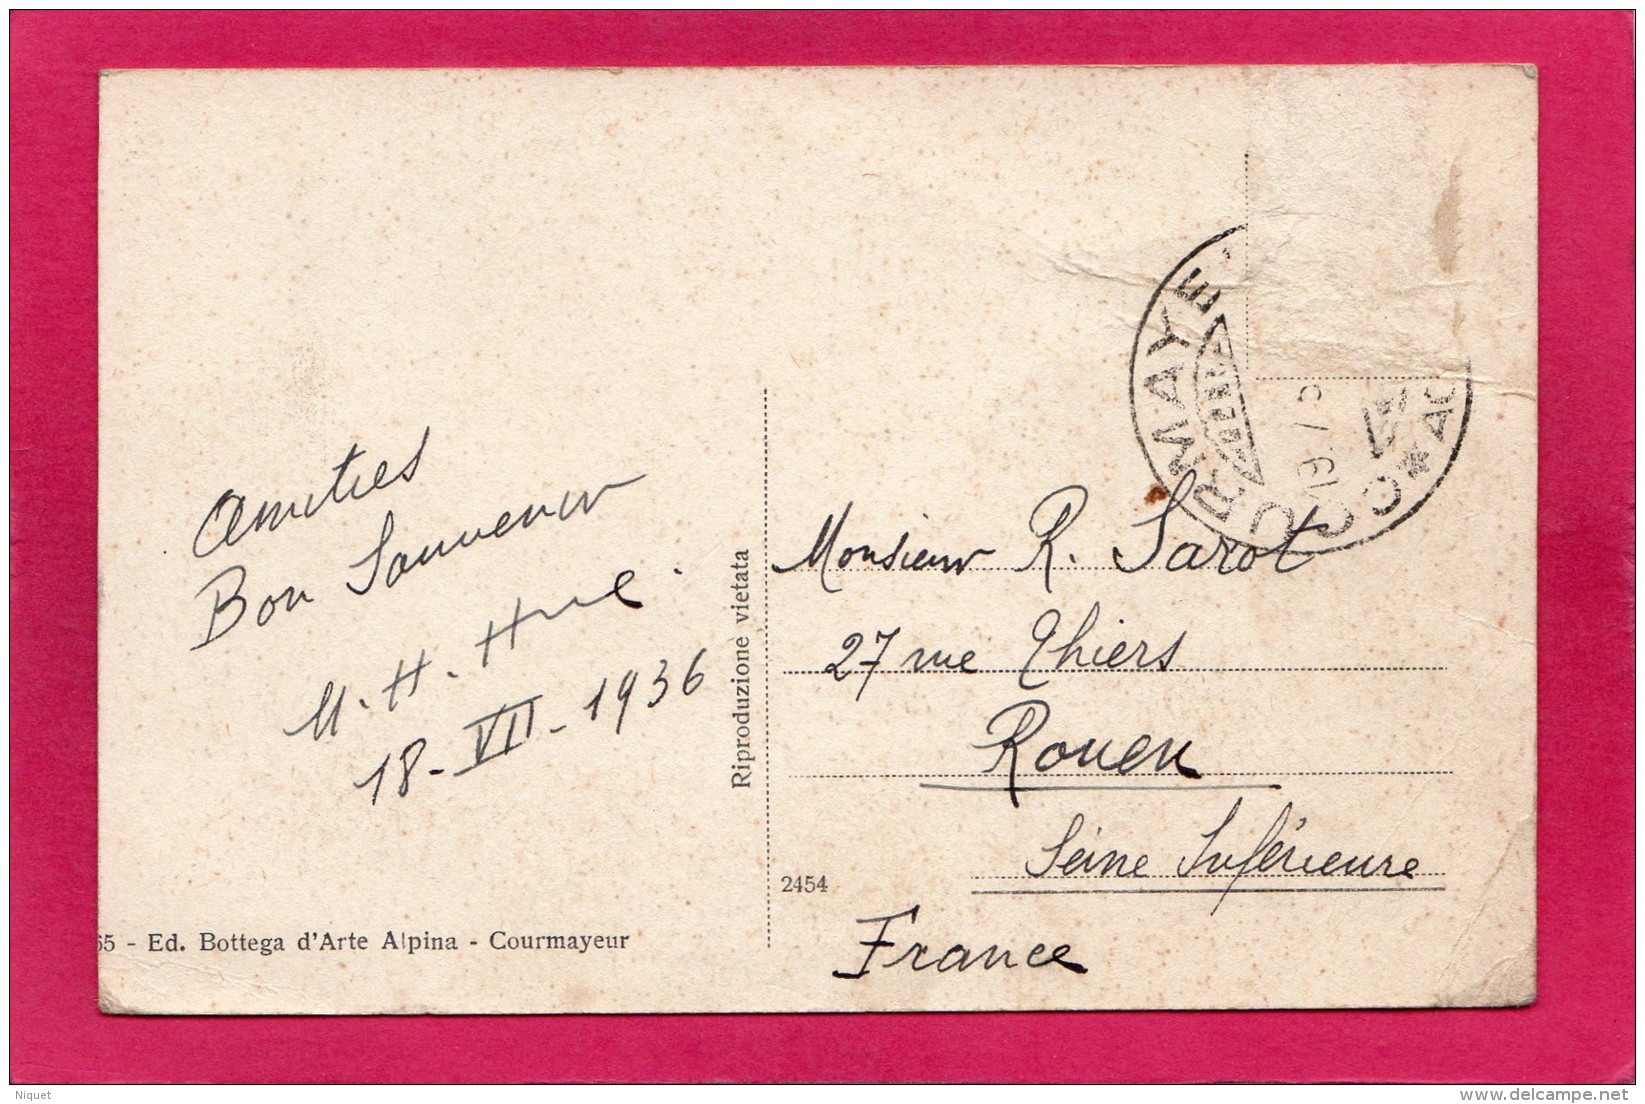 Amitiés
Bon Souvenir
M. H. Hue.
18-VII-1936
Riproduzione vietata
65 - Ed. Bottega d'Arte Alpina - Courmayeur
2454
COURMAYE
Monsieur R. Sarot
27 rue Thiers
Rouen
Seine Inférieure
France
Niquet
www.delcampe.net